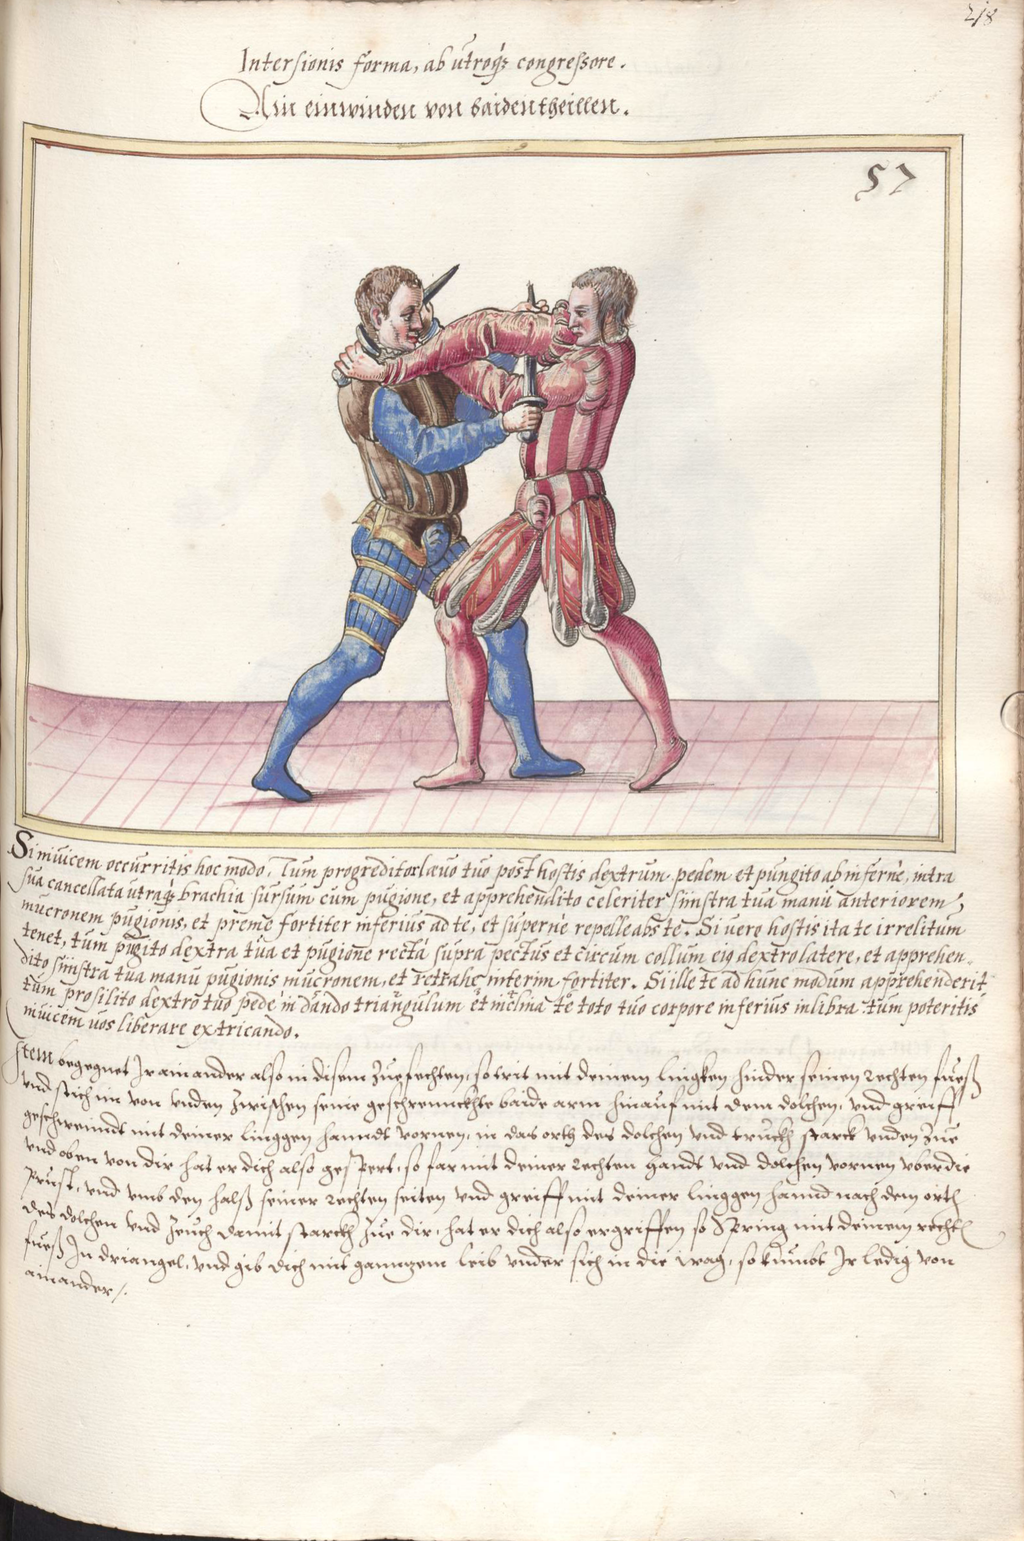 218
Intersionis forma, ab utroq꜑ congressore.
Ain einwinden von baidentheillen.
57
Si inuicem occurritis hoc modo, Tum progreditor laeuo tuo post hostis dextrum pedem et pungito ab infernè, intra
sua cancellata utraq꜑ brachia sursum cum pugione, et apprehendito celeriter sinistra tua manu anteriorem,
mucronem pugionis, et preme fortiter inferius ad te, et supernè repelle abs te. Si uero hostis ita te irrelitum
tenet, tum pungito dextra tua et pugione rectà supra pectus et circum collum eiꝯ dextro latere, et apprehen-
dito sinistra tua manu pugionis mucronem, et retrahe interim fortiter. Si ille te ad hunc modum apprehenderit
tum prosilito dextro tuo pede in dando triangulum et inclina te toto tuo corpore inferius in libra tum poteritis
inuicem uos liberare extricando.
Item begegnet Ir ainander also in disem Zuefechten, so trit mit deinem lingken hinder seinen rechten fueß
vnd stich im von vnden zwischen seine geschrennckhte baide arm hinauf mit dem dolchen, vnd greiff
geschwenndt mit deiner linggen hanndt vornen, in das orth des dolchen vnd truckh starck vnden zue
vnd oben von dir hat er dich also gespert, so far mit deiner rechten handt vnd dolchen vornen vber die
Prust, vnd vmb den halß seiner rechten seiten vnd greiff mit deiner linggen hannd nach dem orth
des dolchen vnd zeuch damit starckh zue dir, hat er dich also ergriffen so Spring mit deinem rechten
fueß In driangel, vnd gib dich mit ganntzem leib vnder sich in die wag, so kumbt Ir ledig von
ainander /.